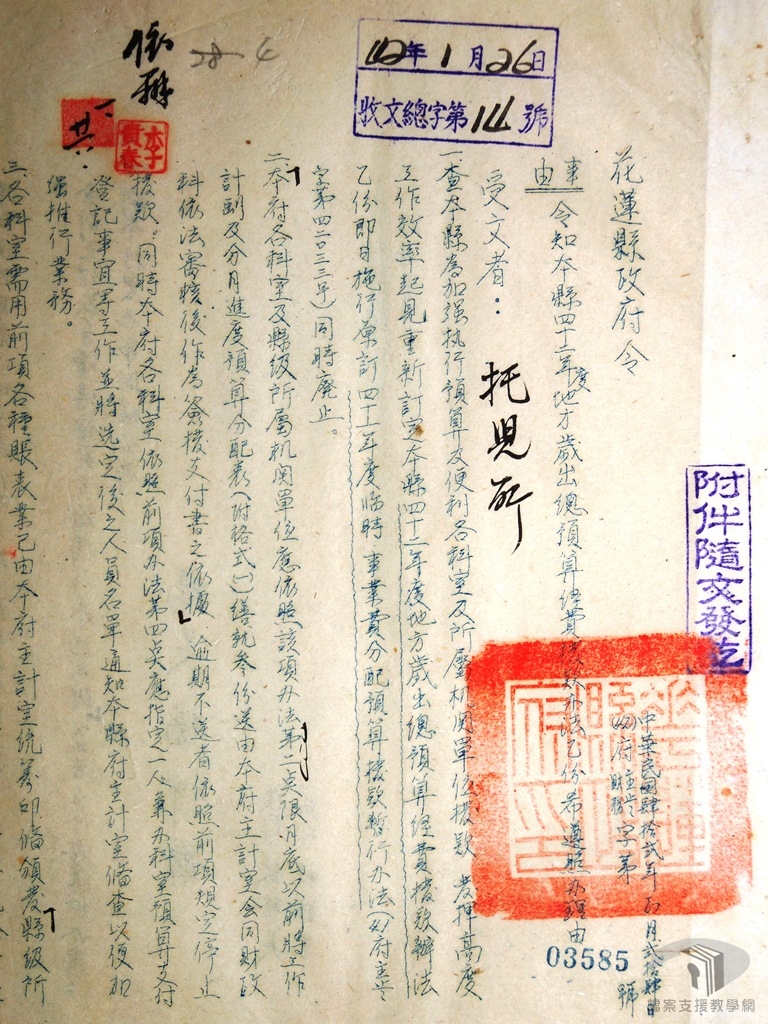 42年1月26日
收文總字第14號
28-4
依辦
花蓮縣政府令
附件隨文發訖
中華民國肆拾貳年元月貳拾肆日
(42)府主歲財務字第
03585
號
事由
令知本縣四十二年度地方歲出總預算經費撥款办法乙份希遵照办理由
受文者：
托兒所
一查本縣為加强执行預算及便利各科室及所屬机関單位撥款 發揮高度
工作效率起見重新訂定本縣四十二年度地方歲出總預算經費撥款辦法
乙份即日施行原訂四十一年度临時 事業費分配預算撥款暫行办法(41)府主歲
字第四二〇三三号)同時廢止。
二本府各科室及縣級所屬机関單位應依照該項办法第二点限月底以前將工作
計劃及分月進度預算分配表(附格式(一)繕就叁份送由本府主計室会同財政
科依法審核後作為簽撥支付書之依據 逾期不送者依照前項規定停止
撥款。同時本府各科室依照前項办法第四点應指定一人兼办科室預算支付
登記事宜等工作並將选定後之人員名單通知本縣府主計室備查以便加
强推行業務。
三各科室需用前項各種賬表業已由本府主計室統籌印備頒發縣級所
檔案支援教學網